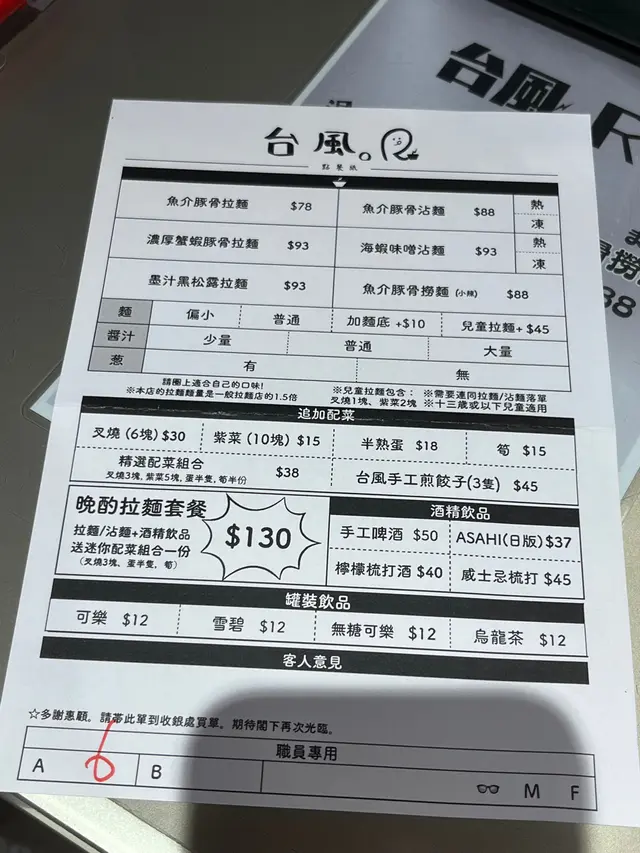 台風
台風。R
點餐紙
魚介豚骨拉麵 $78 魚介豚骨沾麵 $88 熱 凍
濃厚蟹蝦豚骨拉麵 $93 海蝦味噌沾麵 $93 熱 凍
墨汁黑松露拉麵 $93 魚介豚骨撈麵 (小辣) $88
麵 偏小 普通 加麵底 +$10 兒童拉麵+ $45
醬汁 少量 普通 大量
葱 有 無
請圈上適合自己的口味!
※本店的拉麵麵量是一般拉麵店的1.5倍
※兒童拉麵包含: ※需要連同拉麵/沾麵落單
叉燒1塊、紫菜2塊 ※十三歲或以下兒童適用
追加配菜
叉燒 (6塊) $30 紫菜 (10塊) $15 半熟蛋 $18 筍 $15
精選配菜組合 $38 台風手工煎餃子(3隻) $45
叉燒3塊, 紫菜5塊, 蛋半隻, 筍半份
晚酌拉麵套餐
拉麵/沾麵+酒精飲品
送迷你配菜組合一份
(叉燒3塊、蛋半隻, 筍)
$130
酒精飲品
手工啤酒 $50 ASAHI(日版)$37
檸檬梳打酒 $40 威士忌梳打 $45
罐裝飲品
可樂 $12 雪碧 $12 無糖可樂 $12 烏龍茶 $12
客人意見
☆多謝惠顧。請帶此單到收銀處買單。期待閣下再次光臨。
職員專用
A 6 B M F